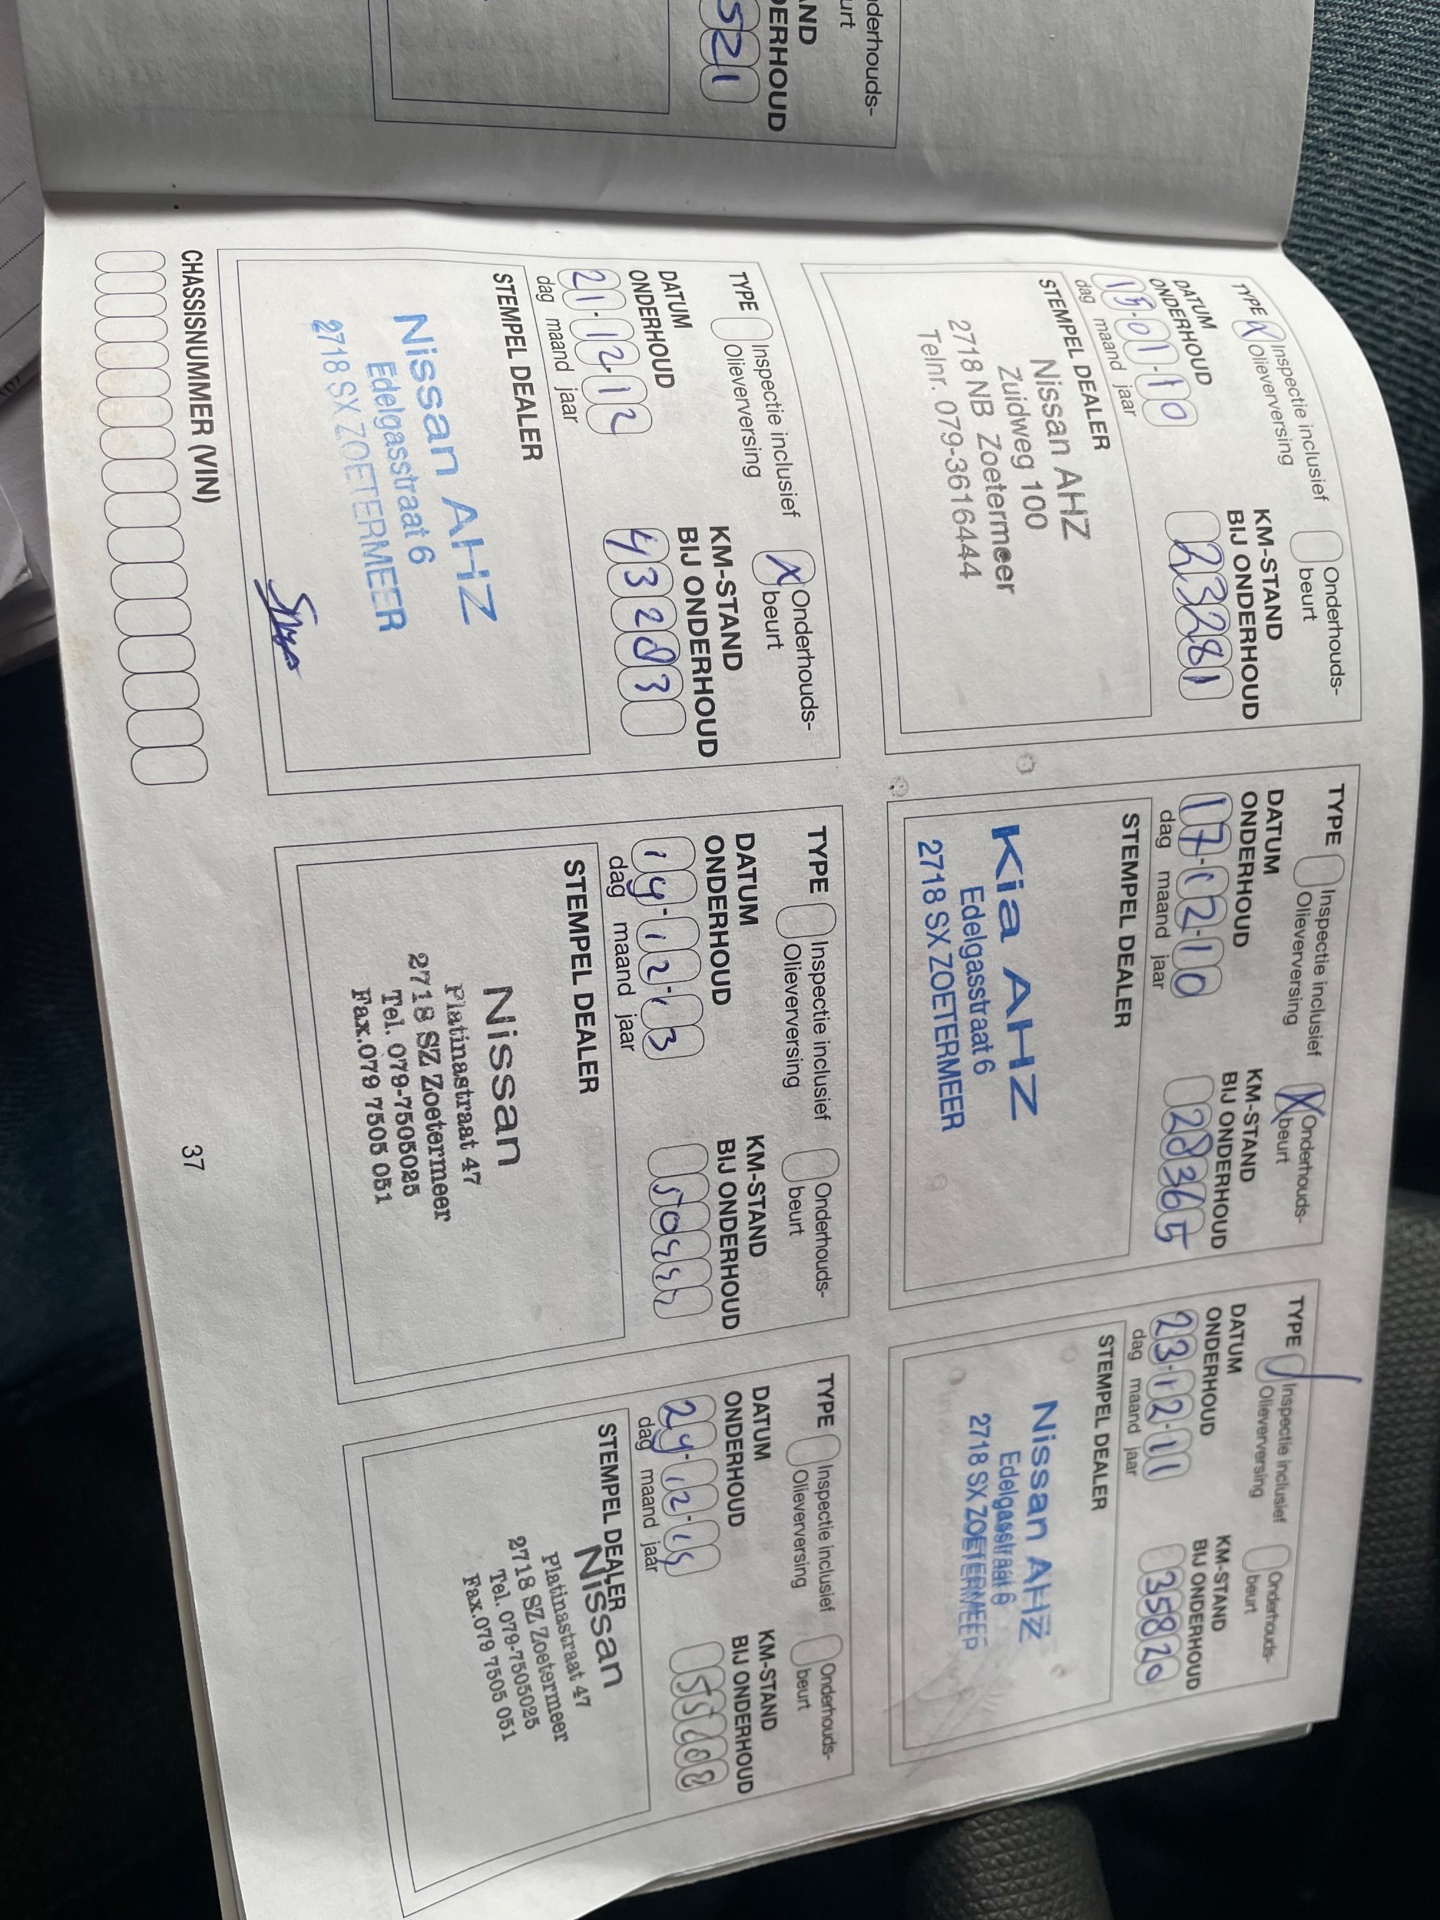 nderhouds-
urt
AND
DERHOUD
521
TYPE X Inspectie inclusief
Olieverversing
Onderhouds-
beurt
DATUM
ONDERHOUD
KM-STAND
BIJ ONDERHOUD
15-01-10
23281
dag maand jaar
STEMPEL DEALER
Nissan AHZ
Zuidweg 100
2718 NB Zoetermeer
Telnr. 079-3616444
TYPE Inspectie inclusief
Olieverversing
X Onderhouds-
beurt
DATUM
ONDERHOUD
KM-STAND
BIJ ONDERHOUD
17-12-10
28365
dag maand jaar
STEMPEL DEALER
Kia AHZ
Edelgasstraat 6
2718 SX ZOETERMEER
TYPE Inspectie inclusief
Olieverversing
Onderhouds-
beurt
DATUM
ONDERHOUD
KM-STAND
BIJ ONDERHOUD
23-12-11
35820
dag maand jaar
STEMPEL DEALER
Nissan AHZ
Edelgasstraat 6
2718 SX ZOETERMEER
TYPE Inspectie inclusief
Olieverversing
X Onderhouds-
beurt
DATUM
ONDERHOUD
KM-STAND
BIJ ONDERHOUD
21-12-12
43283
dag maand jaar
STEMPEL DEALER
Nissan AHZ
Edelgasstraat 6
2718 SX ZOETERMEER
TYPE Inspectie inclusief
Olieverversing
Onderhouds-
beurt
DATUM
ONDERHOUD
KM-STAND
BIJ ONDERHOUD
14-12-13
dag maand jaar
STEMPEL DEALER
Nissan
Platinastraat 47
2718 SZ Zoetermeer
Tel. 079-7505025
Fax.079 7505 051
TYPE Inspectie inclusief
Olieverversing
Onderhouds-
beurt
DATUM
ONDERHOUD
KM-STAND
BIJ ONDERHOUD
dag maand jaar
STEMPEL DEALER
Nissan
Platinastraat 47
2718 SZ Zoetermeer
Tel. 079-7505025
Fax.079 7505 051
CHASSISNUMMER (VIN)
37